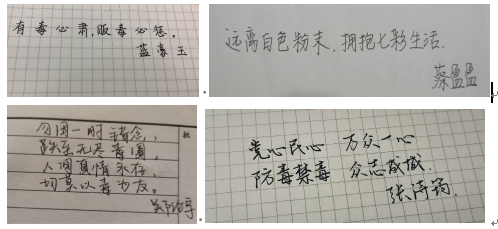 有毒必肃,贩毒必惩.
蓝
玉
远离白色粉末,拥抱七彩生活.
蔡盈盈
勿因一时
毒圈,
人间真情永存,
切莫以毒为友。
党心民心 万众一心
防毒禁毒 众志成城.
张诗筠.